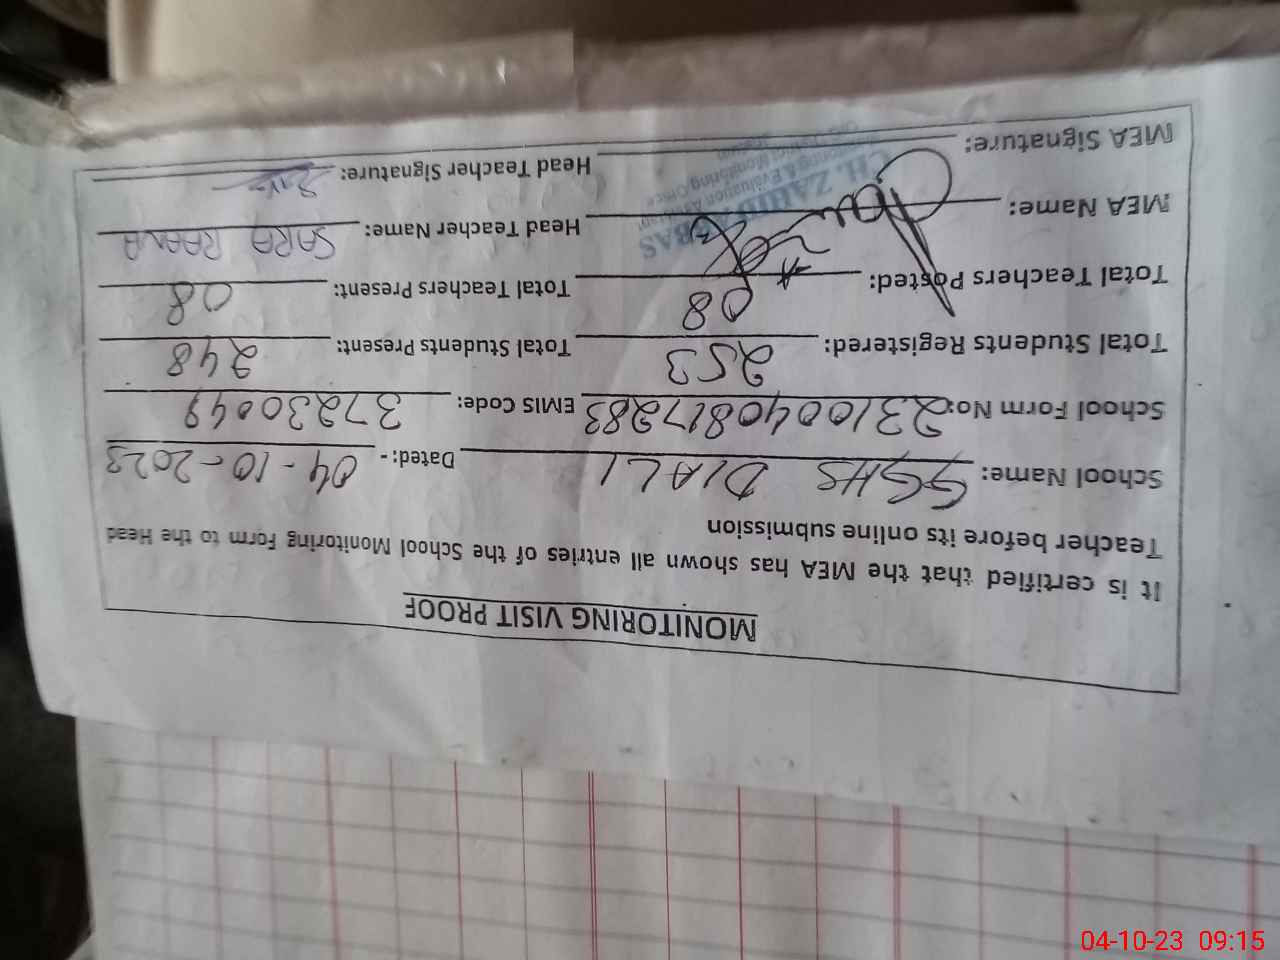 MONITORING VISIT PROOF
It is certified that the MEA has shown all entries of the School Monitoring Form to the Head
Teacher before its online submission
School Name: GGHS DIALI Dated:- 04-10-2023
School Form No: 2310040817283 EMIS Code: 37230049
Total Students Registered: 253 Total Students Present: 248
Total Teachers Posted: 08 Total Teachers Present: 08
MEA Name: Head Teacher Name: SARA RAANA
MEA Signature: Head Teacher Signature:
CH. ZAHID ABBAS
Monitoring & Evaluation Assistant
District Monitoring Office
04-10-23 09:15